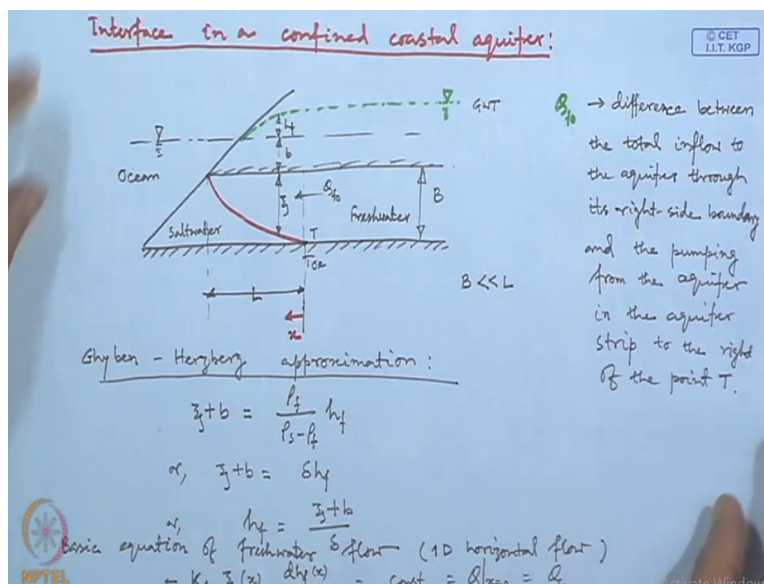 Interface in a confined coastal aquifer:
© CET
I.I.T. KGP
GWT
hf
b
Ocean
ξ
Q_f0
Saltwater
Freshwater
B
T
Toe
L
x
B << L
Q_f0 → difference between
the total inflow to
the aquifer through
its right-side boundary
and the pumping
from the aquifer
in the aquifer
strip to the right
of the point T.
Ghyben - Herzberg approximation:
ξ+b = ρf / (ρs-ρf) hf
or, ξ+b = δhf
or, hf = (ξ+b) / δ
Basic equation of freshwater flow (1D horizontal flow)
dhf(x)
= const =
NPTEL